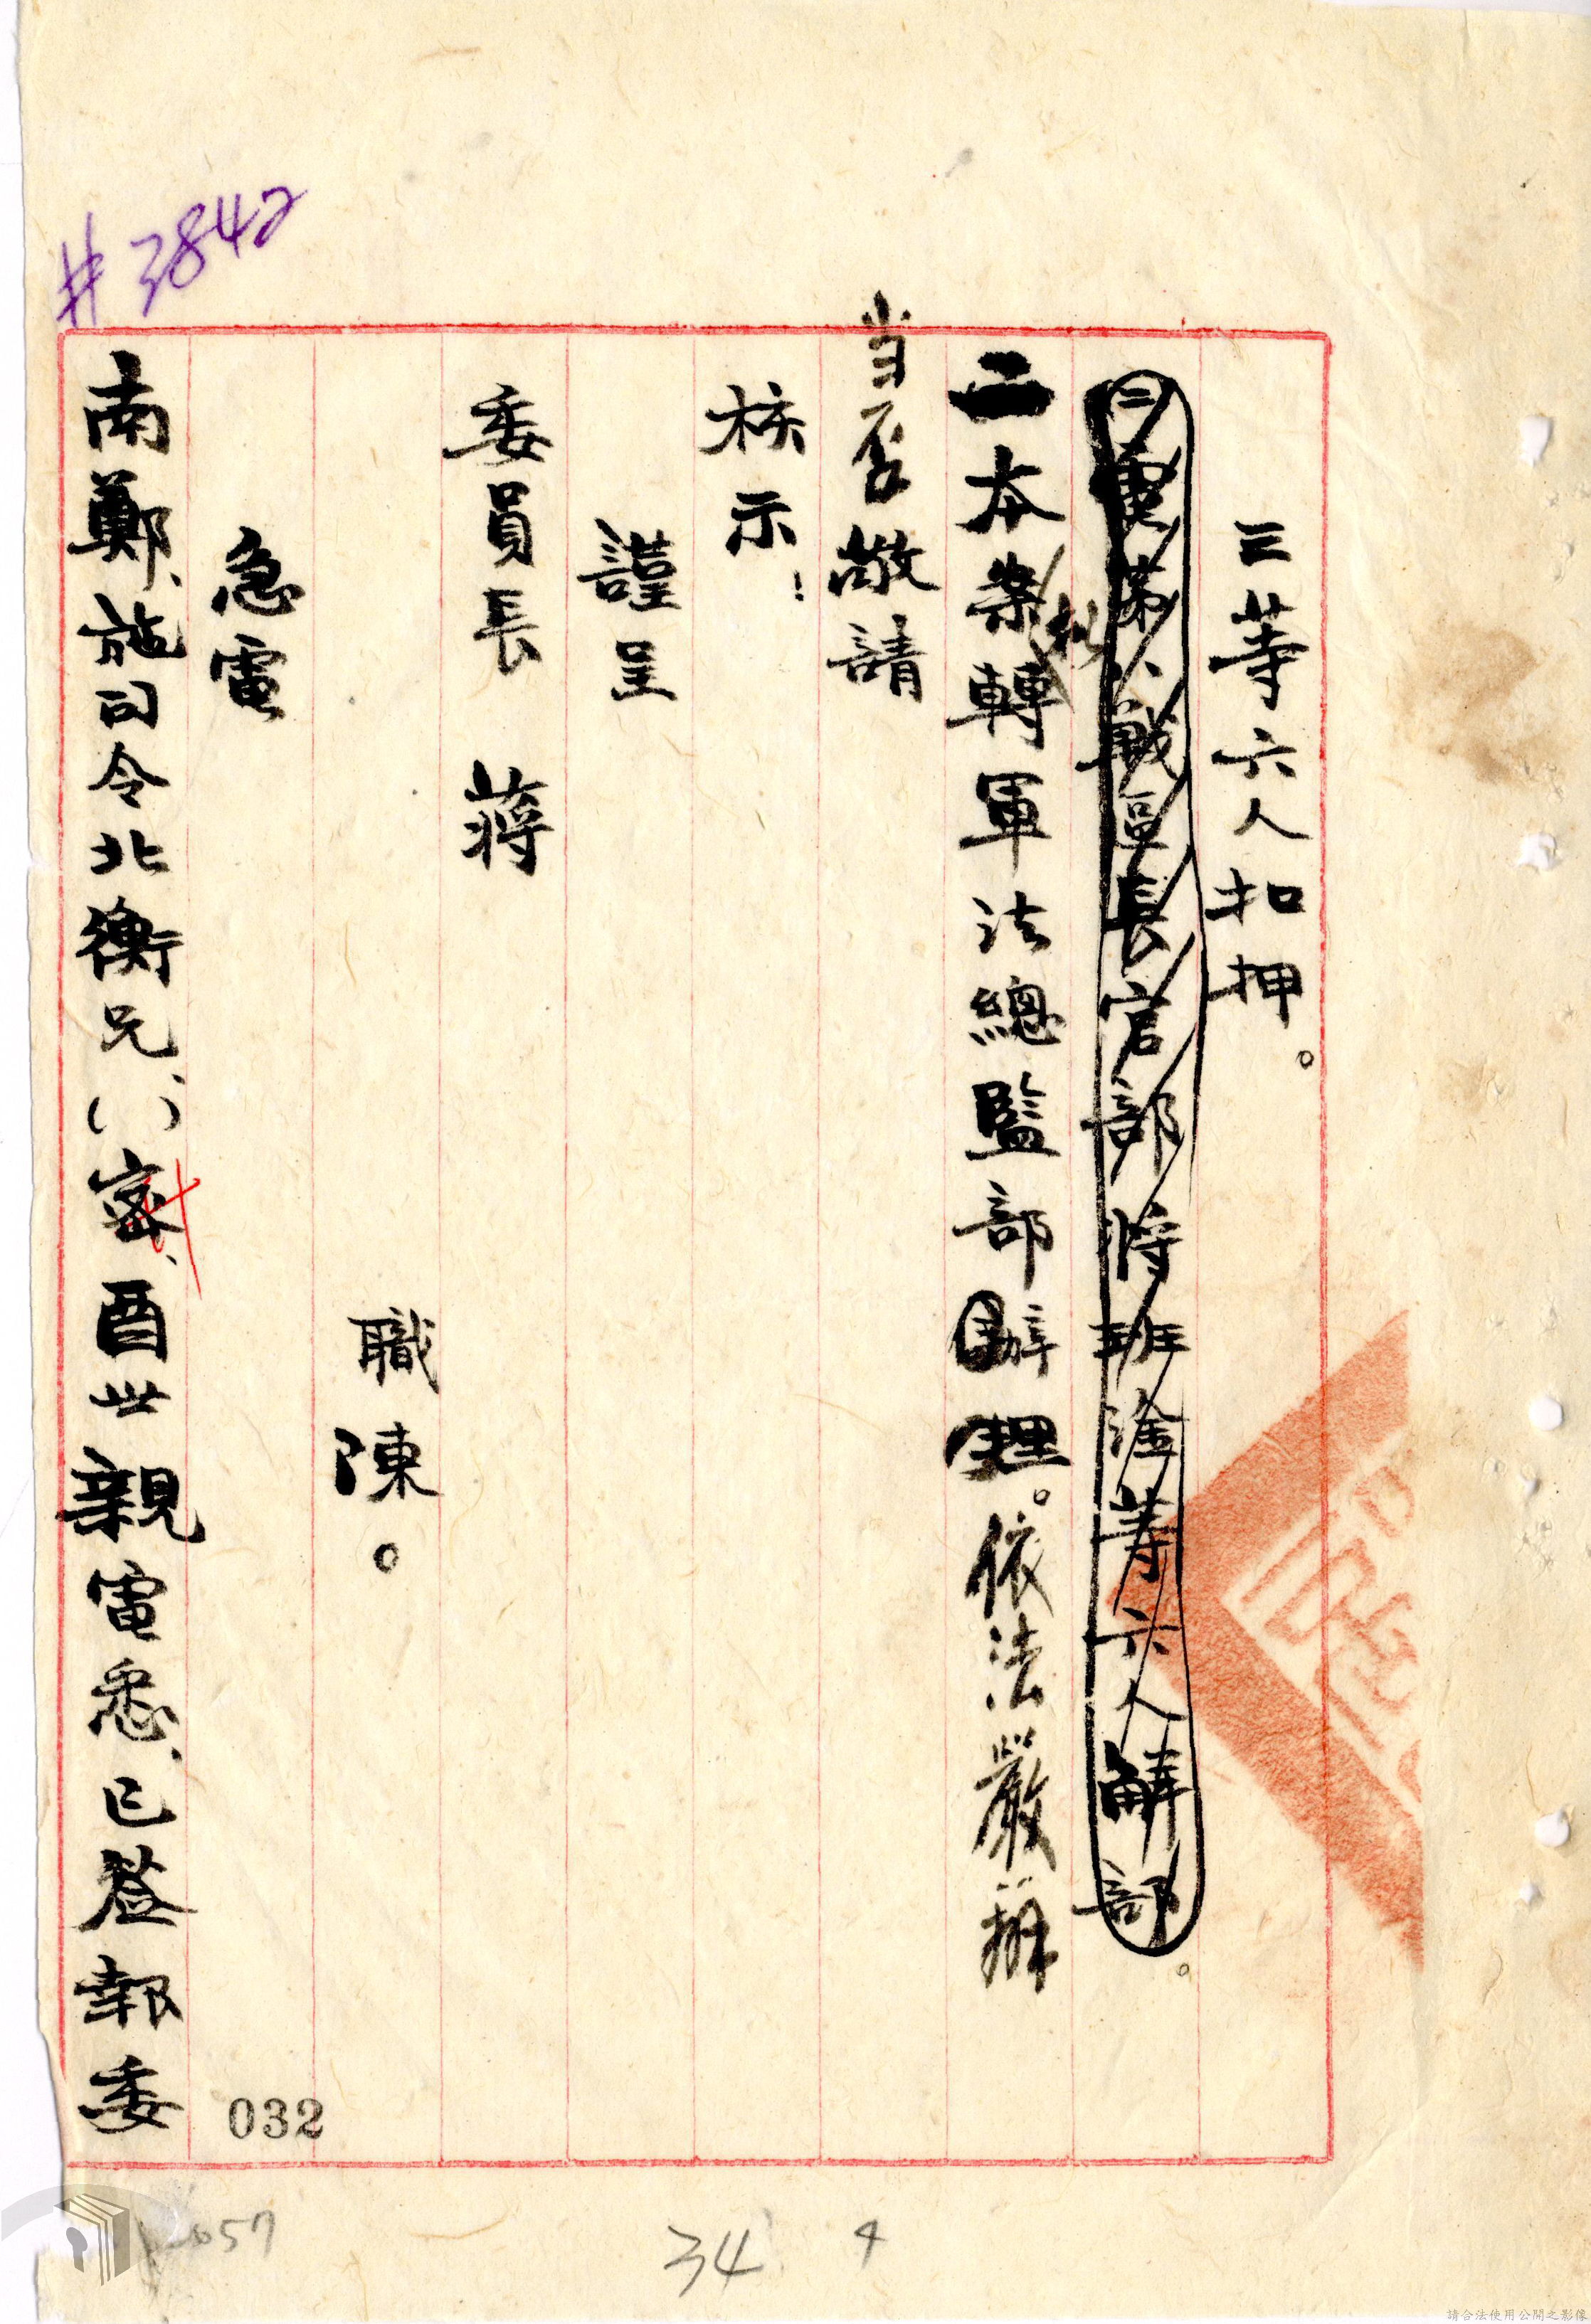 #3842
三等六人扣押。
㈡電第八戰區長官部將班淦等六人解部。
二本案擬轉軍法總監部辦理。依法嚴辦
当否敬請
核示!
謹呈
委員長 蔣
職陳。
急電
南鄭、施司令北衡兄、( )密、酉世親電悉、已簽報委
032
057
34
4
請合法使用公開之影像